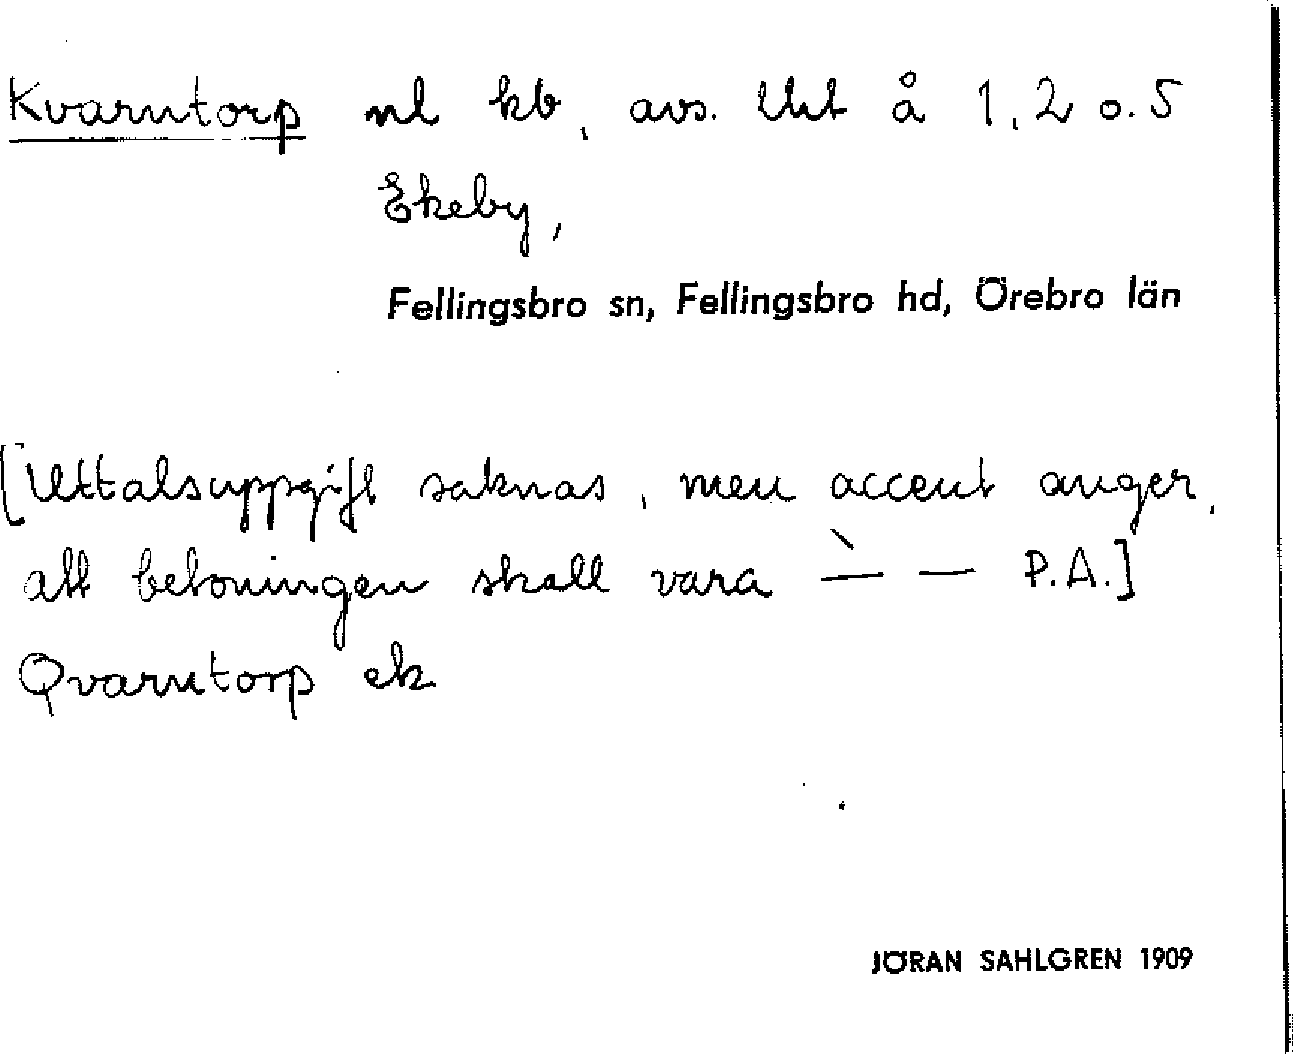 Kvarntorp nl kb, avs. Utt å 1, 2 o. 5
Ekeby,
Fellingsbro sn, Fellingsbro hd, Örebro län
[Uttalsuppgift saknas, men accent anger,
att betoningen skall vara —̀ — P.A.]
Qvarntorp ek
JÖRAN SAHLGREN 1909